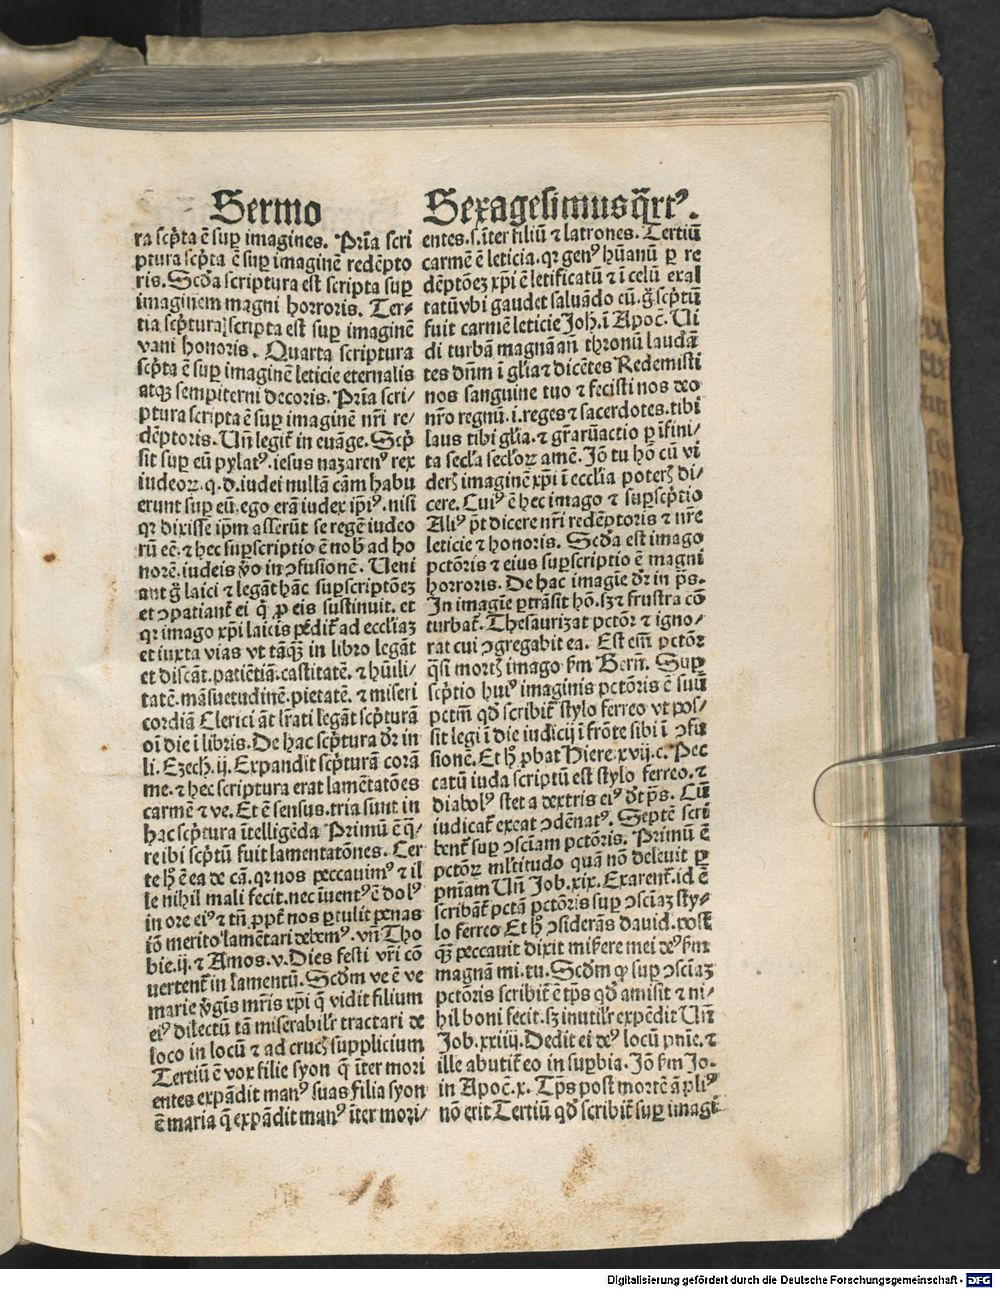 Sermo
Sexagesimusq̃rtꝰ.
ra scp̃ta ē suꝑ imagines. Prīa scri
ptura scp̃ta ē suꝑ imaginē redēpto
ris. Scd̃a scriptura est scripta suꝑ
imaginem magni horroris. Ter⸗
tia scp̃tura scripta est suꝑ imaginē
vani honoris. Quarta scriptura
scp̃ta ē suꝑ imaginē leticie eternalis
atqꝫ sempiterni decoris. Prīa scri/
ptura scripta ē suꝑ imaginē nr̄i re/
dēptoris. Uñ legit̃ in euāge. Scp̃
sit suꝑ eū pylatꝰ. iesus nazarenꝰ rex
iudeoꝝ. q. d. iudei nullā cām habu
erunt suꝑ eū. ego erā iudex ip̄iꝰ. nisi
qꝛ dixisse ip̄m asserūt se regē iudeo
rū eē. ⁊ hec suꝑscriptio ē nob̃ ad ho
norē. iudeis ṽo in ꝯfusionē. Ueni
ant g̃ laici ⁊ legāt hāc suꝑscriptōeꝫ
et ꝯpatiant̃ ei q̃ ꝓ eis sustinuit. et
qꝛ imago xp̄i laicis p̄dit̃ ad eccl̃iaꝫ
et iuxta vias vt tāqꝫ in libro legāt
et discāt. patiētiā. castitatē. ⁊ hūili/
tatē. māsuetudinē. pietatē. ⁊ miseri
cordiā Clerici āt lr̄ati legāt scp̃turā
oī die ī libris. De hac scp̃tura dr̄ in
li. Ezech. ij. Expandit scp̃turā corā
me. ⁊ hec scriptura erat lamētatōes
carmē ⁊ ve. Et ē sensus. tria sunt in
hac scp̃tura ītelligēda Primū ē q̃/
re ibi scp̃tū fuit lamentatōnes. Cer
te h̃ ē ea de cā. qꝛ nos peccauimꝰ ⁊ il
le nihil mali fecit. nec īuentꝰ ē dolꝰ
in ore eiꝰ ⁊ tñ ꝓpt̃ nos ꝑtulit penas
iō merito lamētari debemꝰ. vñ Tho
bie. ij. ⁊ Amos. v. Dies festi vr̄i cō
uertent̃ in lamentū. Scd̃m ve ē ve
marie ṽgīs mr̄is xp̄i q̃ vidit filium
eiꝰ dilectū tā miserabilr̃ tractari de
loco in locū ⁊ ad crucꝭ supplicium
Tertiū ē vox filie syon q̃ īter mori
entes expādit manꝰ suas filia syon
ē maria q̃ expādit manꝰ īter mori/
entes. s. īter filiū ⁊ latrones. Tertiū
carmē ē leticia. qꝛ genꝰ hūanū ꝑ re
dēptōeꝫ xp̄i ē letificatū ⁊ ī celū exal
tatū vbi gaudet saluādo cū. g̃ scp̃tū
fuit carmē leticie Joh. ī Apoc̄. Ui
di turbā magnā añ thronū laudā
tes dn̄m ī gl̃ia ⁊ dicētes Redemisti
nos sanguine tuo ⁊ fecisti nos deo
nr̄o regnū. i. reges ⁊ sacerdotes. tibi
laus tibi gl̃ia. ⁊ gr̄aꝝ actio ꝑ īfini/
ta secl̃a secl̃oꝝ amē. Jō tu hō cū vi
derꝭ imaginē xp̄i ī eccl̃ia poterꝭ di/
cere. Cuiꝰ ē hec imago ⁊ suꝑscp̃tio
Aliꝰ pt̄ dicere nr̄i redēptoris ⁊ nr̄e
leticie ⁊ honoris. Scd̃a est imago
pctōris ⁊ eius suꝑscriptio ē magni
horroris. De hac imagīe dr̄ in p̄s.
In imagīe ꝑtrāsit hō. sꝫ ⁊ frustra cō
turbat̃. Thesaurizat pctōr ⁊ igno/
rat cui ꝯgregabit ea. Est em̄ pctōr
q̃si mortꝭ imago ẜm Bern̄. Suꝑ
scp̃tio huiꝰ imaginis pctōris ē suū
pctm̄ qd̃ scribit̃ stylo ferreo vt pos/
sit legi ī die iudicij ī frōte sibi ī ꝯfu
sionē. Et h̃ ꝓbat Hiere. xvij. c. Pec
catū iuda scriptū est stylo ferreo. ⁊
diabolꝰ stet a dextris eiꝰ dt̃ p̄s. Cū
iudicat̃ exeat ꝯdēnatꝰ. Septē scri
bent̃ suꝑ ꝯsciam pctōris. Primū ē
pctōꝝ ml̃titudo quā nō deleuit ꝑ
pn̄iam Uñ Job. xix. Exarent̃. id ē
scribāt̃ pctā pctōris suꝑ ꝯsciaꝫ sty/
lo ferreo Et h̃ ꝯsiderās dauid. post
q̃ꝫ peccauit dixit mi̾ere mei deꝰ ẜm
magnā mi. tu. Scd̃m qd̃ suꝑ ꝯsciaꝫ
pctōris scribit̃ ē tp̄s qd̃ amisit ⁊ ni/
hil boni fecit. sꝫ inutilr̃ expēdit Uñ
Job. xxiiij. Dedit ei deꝰ locū pnīe. ⁊
ille abutit̃ eo in suꝑbia. Jō ẜm Jo.
in Apoc̄. x. Tp̄s post mortē āpliꝰ
nō erit Tertiū qd̃ scribit̃ suꝑ imagī
Digitalisierung gefördert durch die Deutsche Forschungsgemeinschaft - DFG